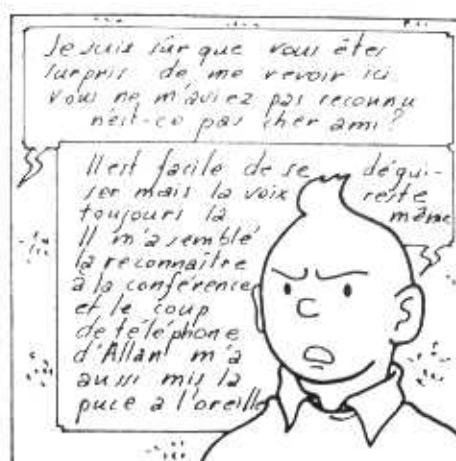 Je suis sûr que vous êtes
surpris de me revoir ici
vous ne m'aviez pas reconnu
n'est-ce pas cher ami?
Il est facile de se dégui-
ser mais la voix reste
toujours la même
Il m'a semblé
la reconnaître
à la conférence
et le coup
de téléphone
d'Allan m'a
aussi mis la
puce a l'oreille